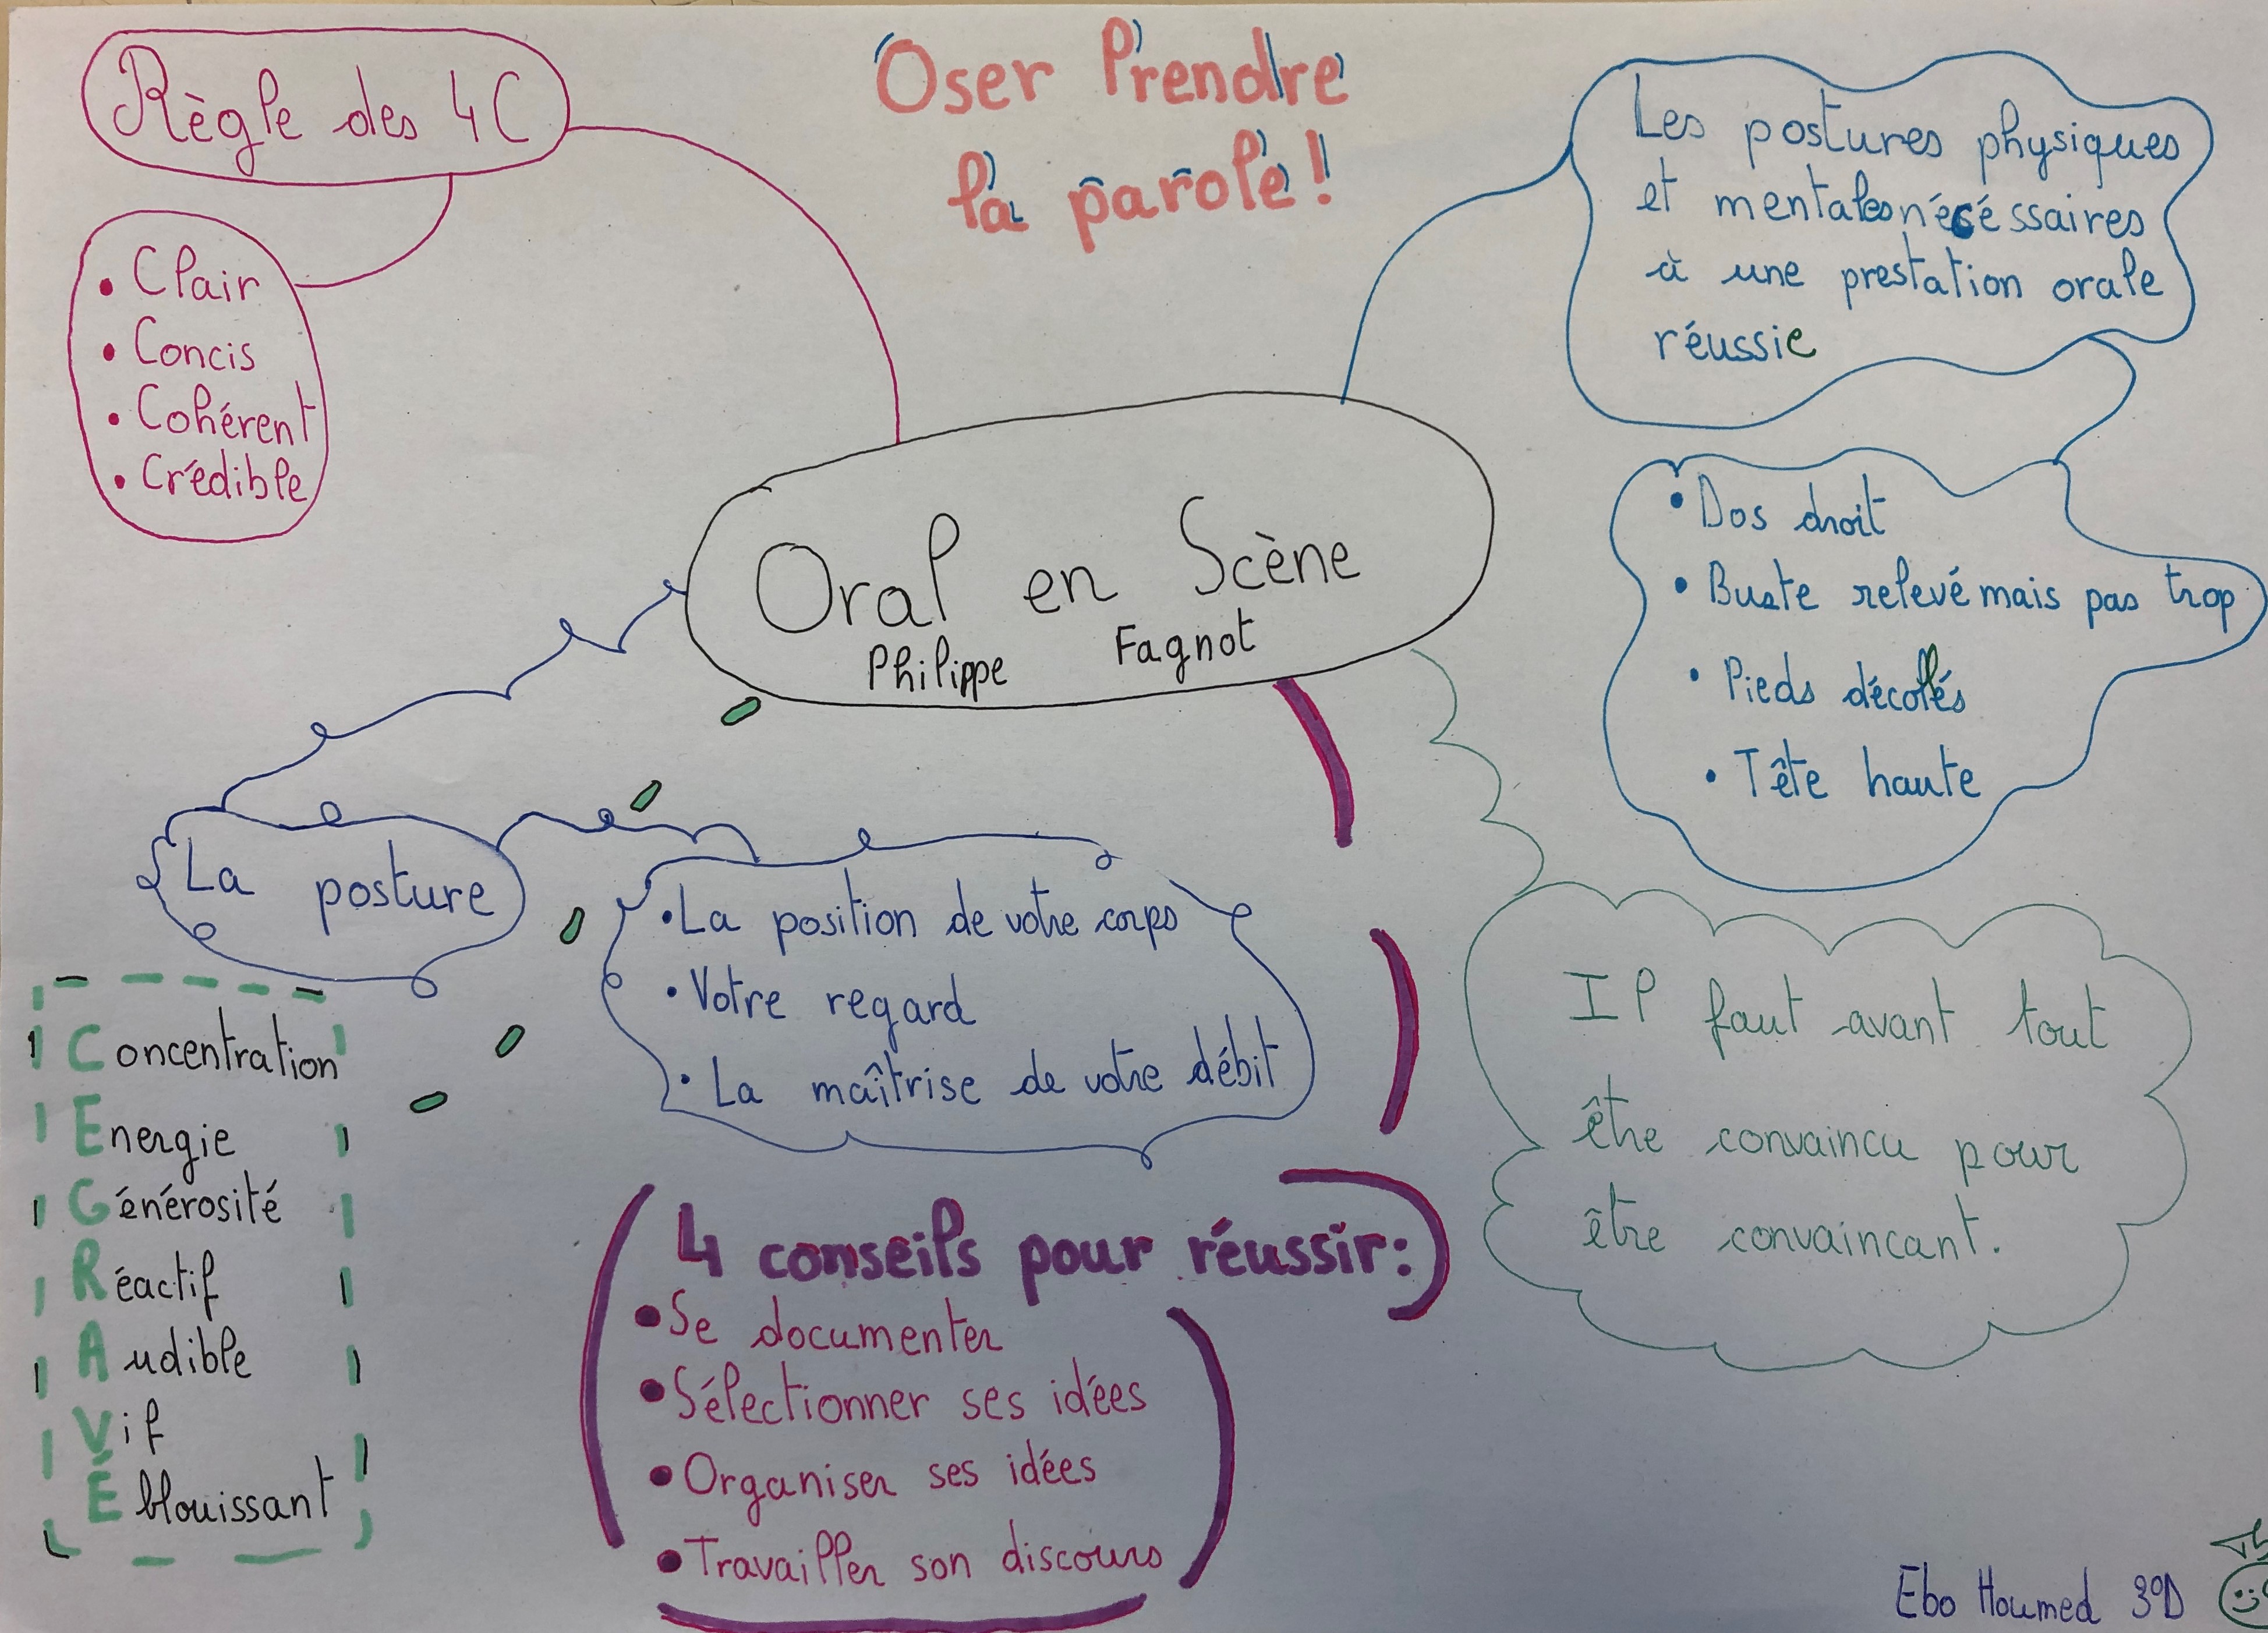 Oser Prendre
la parole !
Règle des 4C
• Clair
• Concis
• Cohérent
• Crédible
Les postures physiques
et mentales nécéssaires
à une prestation orale
réussie
• Dos droit
• Buste relevé mais pas trop
• Pieds décollés
• Tête haute
Oral en Scène
Philippe Fagnot
La posture
• La position de votre corps
• Votre regard
• La maîtrise de votre débit
Il faut avant tout
être convaincu pour
être convaincant.
Concentration
Energie
Générosité
Réactif
Audible
Vif
Éblouissant
4 conseils pour réussir :
• Se documenter
• Sélectionner ses idées
• Organiser ses idées
• Travailler son discours
Ebo Houmed 3°D